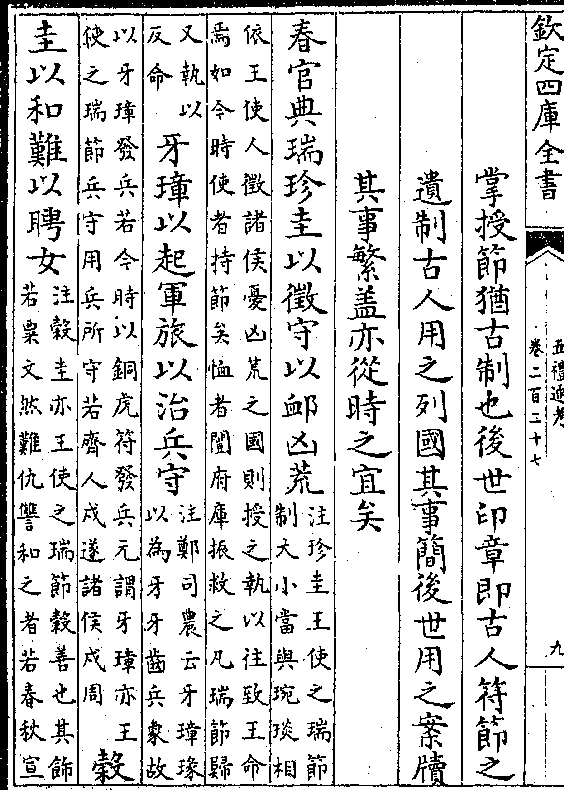 欽定四庫全書
五禮通考
卷二百三十七
九
掌授節猶古制也後世印章即古人符節之
遺制古人用之列國其事簡後世用之案牘
其事繁盖亦從時之宜矣
春官典瑞珍圭以徵守以卹凶荒
注珍圭王使之瑞節
制大小當與琬琰相
依王使人徵諸侯憂凶荒之國則授之執以往致王命
焉如今時使者持節矣恤者闓府庫振救之凡瑞節歸
又執以
反命
牙璋以起軍旅以治兵守
注鄭司農云牙璋瑑
以為牙牙齒兵象故
以牙璋發兵若今時以銅虎符發兵元謂牙璋亦王
使之瑞節兵守用兵所守若齊人戍遂諸侯戍周
榖
圭以和難以聘女
注榖圭亦王使之瑞節榖善也其飾
若粟文然難仇讐和之者若春秋宣